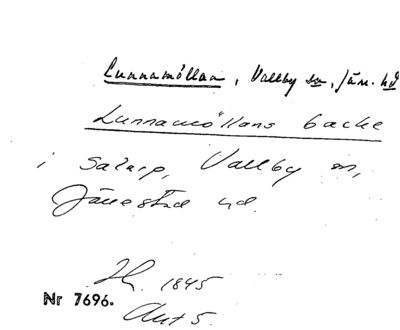 Lunnamöllan, Vallby sn, Järr. hd
Lunnamöllans backe
i Salarp, Vallby sn,
Järrestad hd.
1845
Nr 7696.
Ant 5.